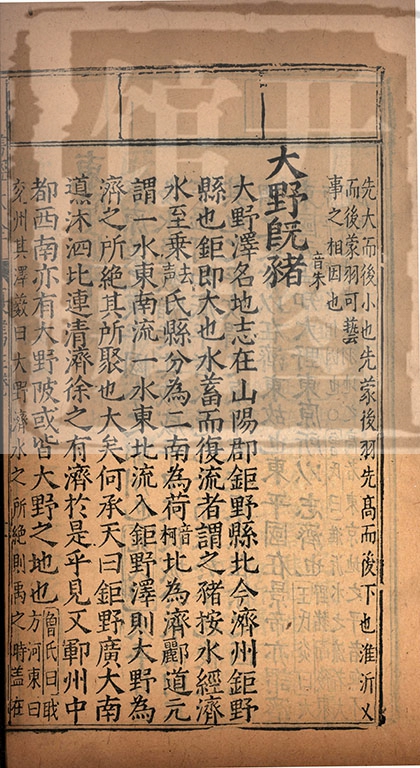 先大而後小也先蒙後羽先高而後下也淮沂乂
而後蒙羽可藝
事之相因也
大野既豬音朱
大野澤名地志在山陽郡鉅野縣北今濟州鉅野
縣也鉅即大也水蓄而復流者謂之豬按水經濟
水至乘去聲氏縣分為二南為荷音柯北為濟酈道元
謂一水東南流一水東北流入鉅野澤則大野為
濟之所絕其所聚也大矣何承天曰鉅野廣大南
導洙泗北連清濟徐之有濟於是乎見又鄆州中
都西南亦有大野陂或皆大野之地也曾氏曰職方河東曰
兗州其澤藪曰大野濟水之所絕則禹之時蓋在